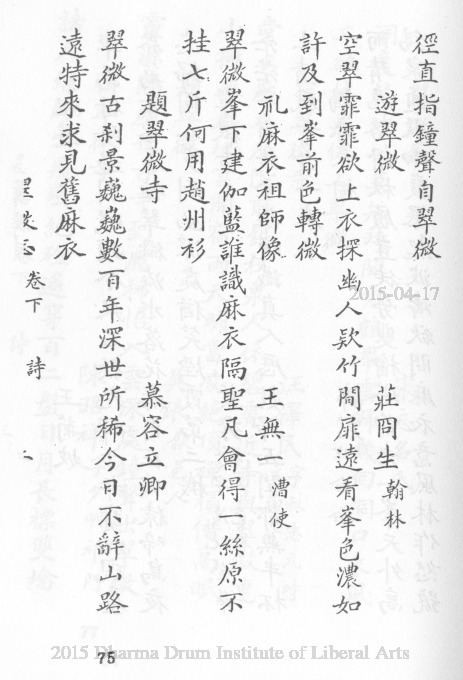 徑直指鐘聲自翠微
遊翠微
莊冏生翰林
空翠霏霏欲上衣探幽人欵竹間扉遠看峯色濃如
許及到峯前色轉微
礼麻衣祖師像
王無
漕使
翠微峯下建伽藍誰識麻衣隔聖凡會得一絲原不
挂七斤何用趙州衫
題翠微寺
慕容立卿
翠微古刹景巍巍數百年深世所稀今日不辭山路
遠特來求見舊麻衣
卷下
詩
二
2015-04-17
2015 Dharma Drum Institute of Liberal Arts
75